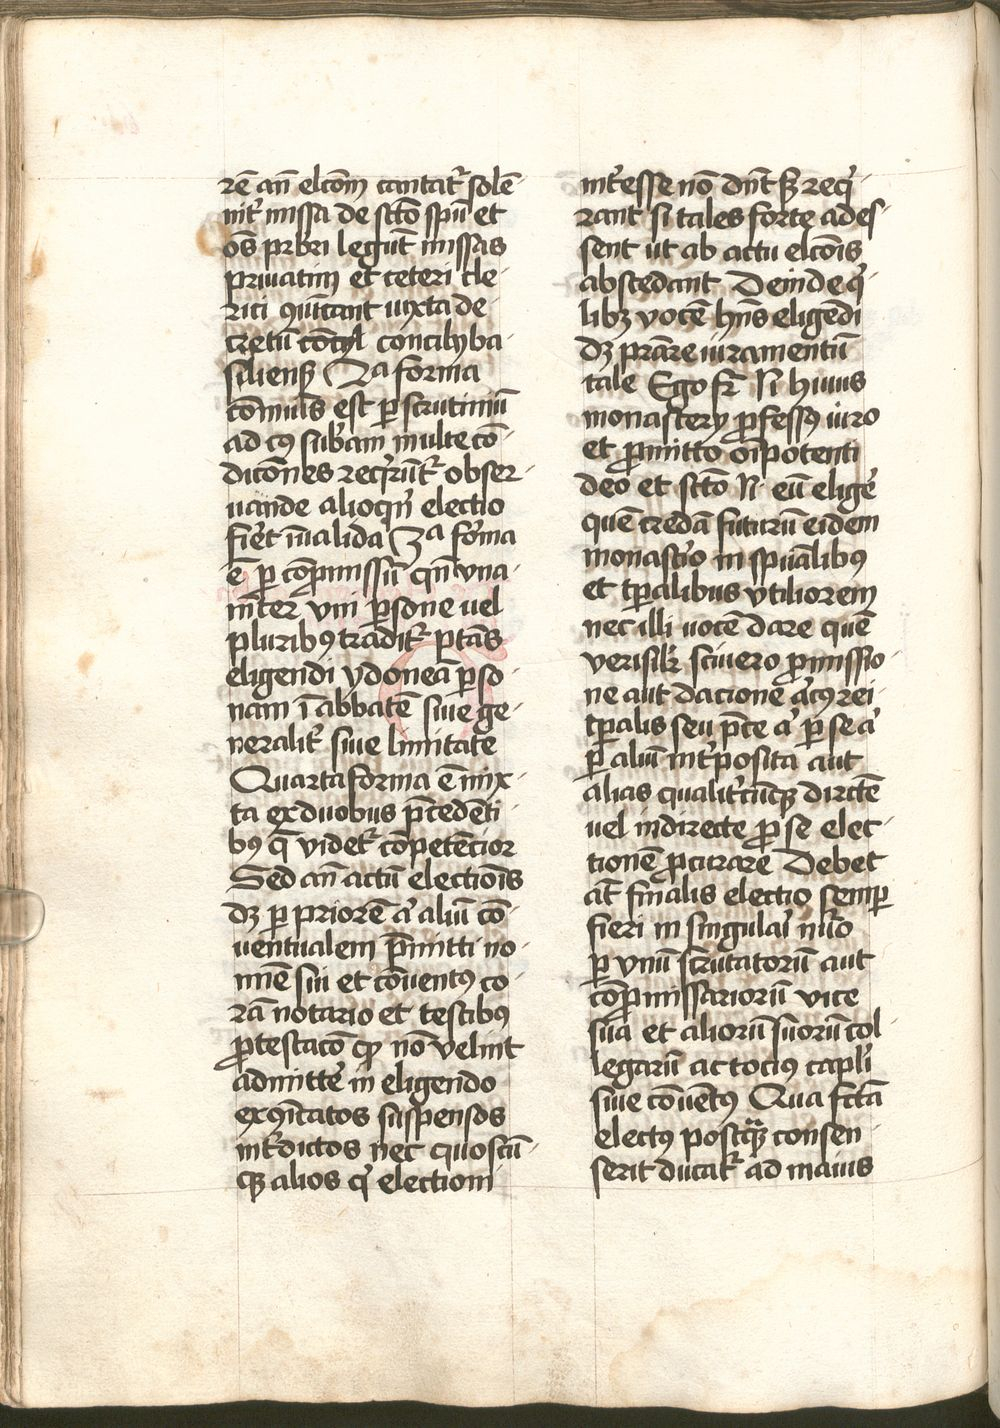 rē an̄ elcōm cantat᷑ solē-
nit᷑ missa de sc̄to sp̄u et
om̄s prb̄ri legūt missas
priuatim et ceteri cle-
rici 9ūicant iuxta de-
cretū concilyba-
silienß 2ᵃ forma
cōmuīs est ꝑ scrutiniū
ad cꝰ sub̄am multe cō-
dicōnes reqr̄unt᷑ obser-
uande alioqn̄ electio
fiēt īualida 3ᵃ forma
ē ꝑ cōpromissū qn̄ vna-
nit᷑er vni ꝑsone uel
pluribꝰ tradit᷑ pt̄as
eligendi ydoneā ꝑso-
nam ī abbatē siue ge-
neralit᷑ siue limitate
Quarta forma ē mix-
ta ex duobus p̄cedēti-
bꝰ q̄ videt᷑ cōpetēcior
Sed an̄ actū electiōis
dꝫ ꝑ priorē a᷑ aliū cō-
uentualem p̄mitti no-
mīe sui et cōuentꝰ co-
rā notario et testibus
ꝓtestacō ꝙ nō velint
admitte᷑ in eligendo
ex9īcatos suspensos
int᷑dictos nec quoscū-
qꝫ alios q᷑ electioni
int᷑esse nō dn̄t ß req᷑-
rant si tales forte ades-
sent ut ab actu elcōis
abscedant Deinde q᷑-
libꝫ vocē hn̄s eligēdi
dꝫ p̄stare iuramentū
tale Ego fr̄ N huius
monastery ꝓfessꝰ iuro
et ꝓmitto oīpotenti
deo et sc̄to N· eū elige᷑
quē credā futurū eidem
monast᷑io in sp̄ualibꝰ
et tp̄alibus vtiliorem
nec illi uocē dare quē
verisilr̄ sciuero ꝓmissio-
ne aut dacione a᷑cꝰ rei
tp̄alis seu p̄ce a᷑ ꝑ se a᷑
ꝑ aliū int᷑posita aut
alias qualit᷑cūqꝫ dircte
uel indirecte ꝓ se elec-
tionē ꝓcurare Debet
at᷑ finalis electio semꝑ
fieri in singulai᷑ nūo
ꝑ vnū scrutatorū aut
cōpromissariorū vice
sua et aliorū suorū col-
legarū ac tociꝰ capl᷑i
siue cōuētꝰ Qua fc̄ta
electꝰ postqꝫ consen-
serit ducat᷑ ad maius